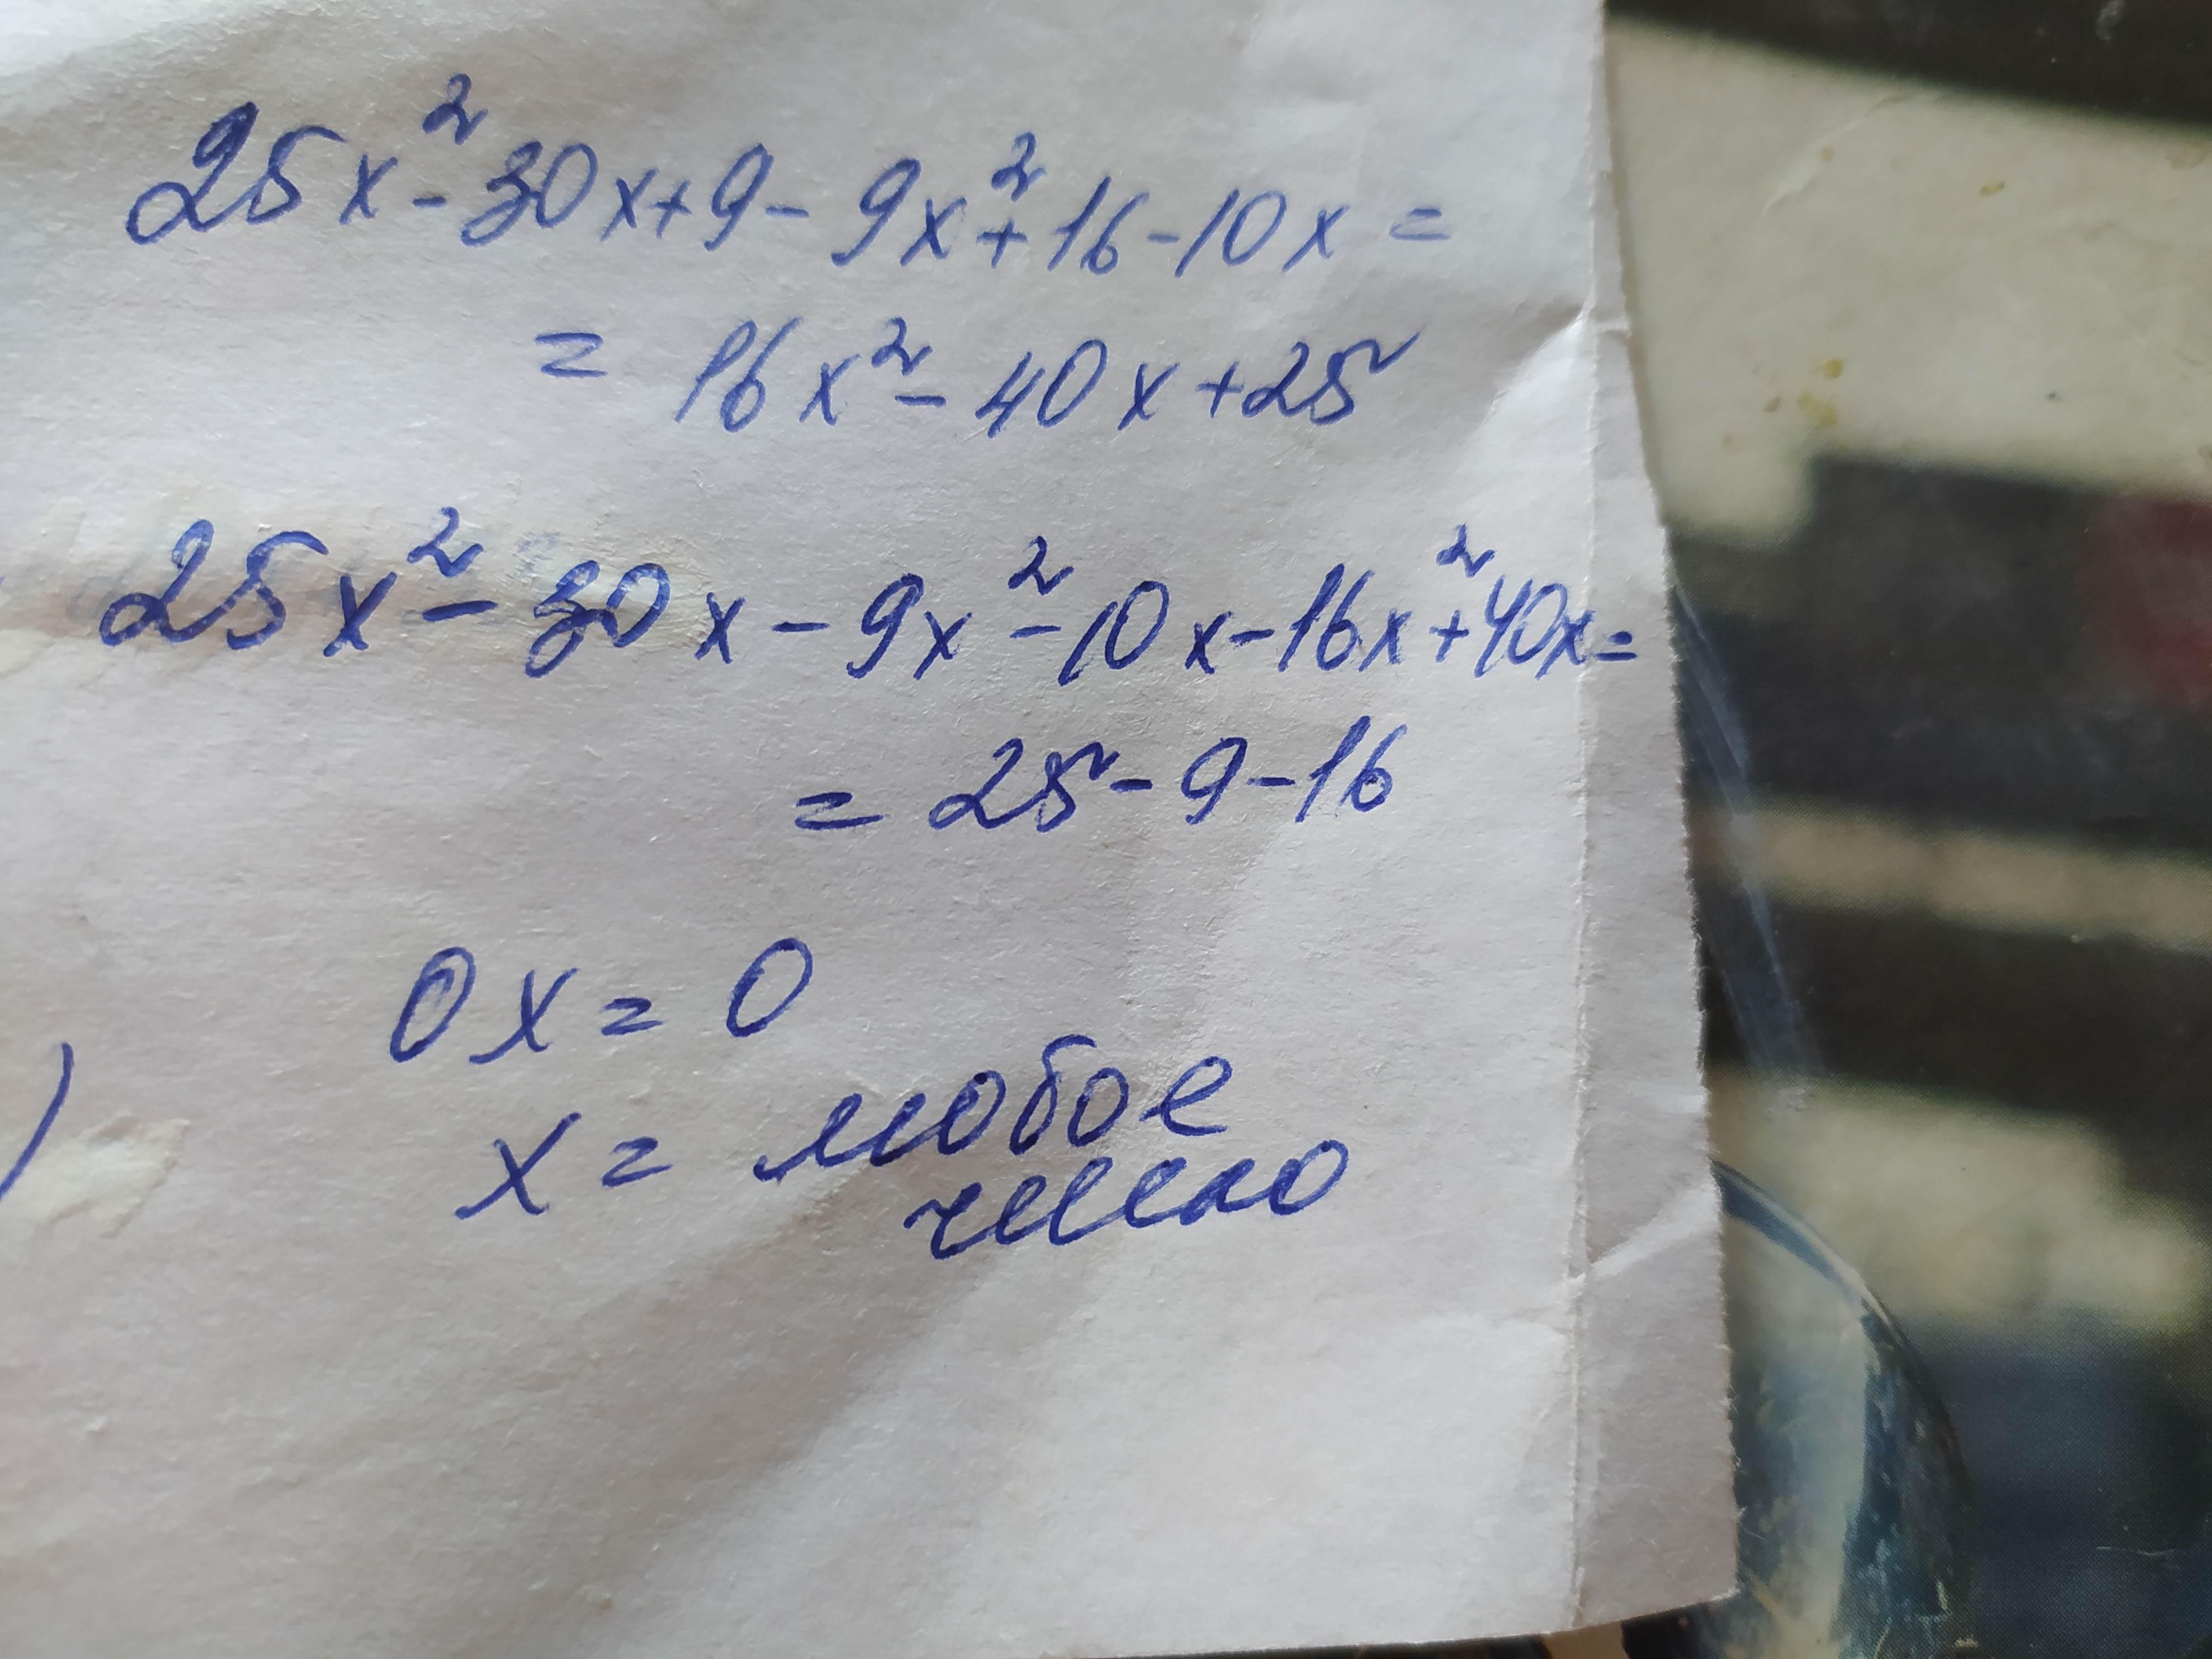 25x²-30x+9-9x²+16-10x=
=16x²-40x+25
25x²-30x-9x²-10x-16x²+40x=
=25-9-16
0x=0
)
x=любое
число